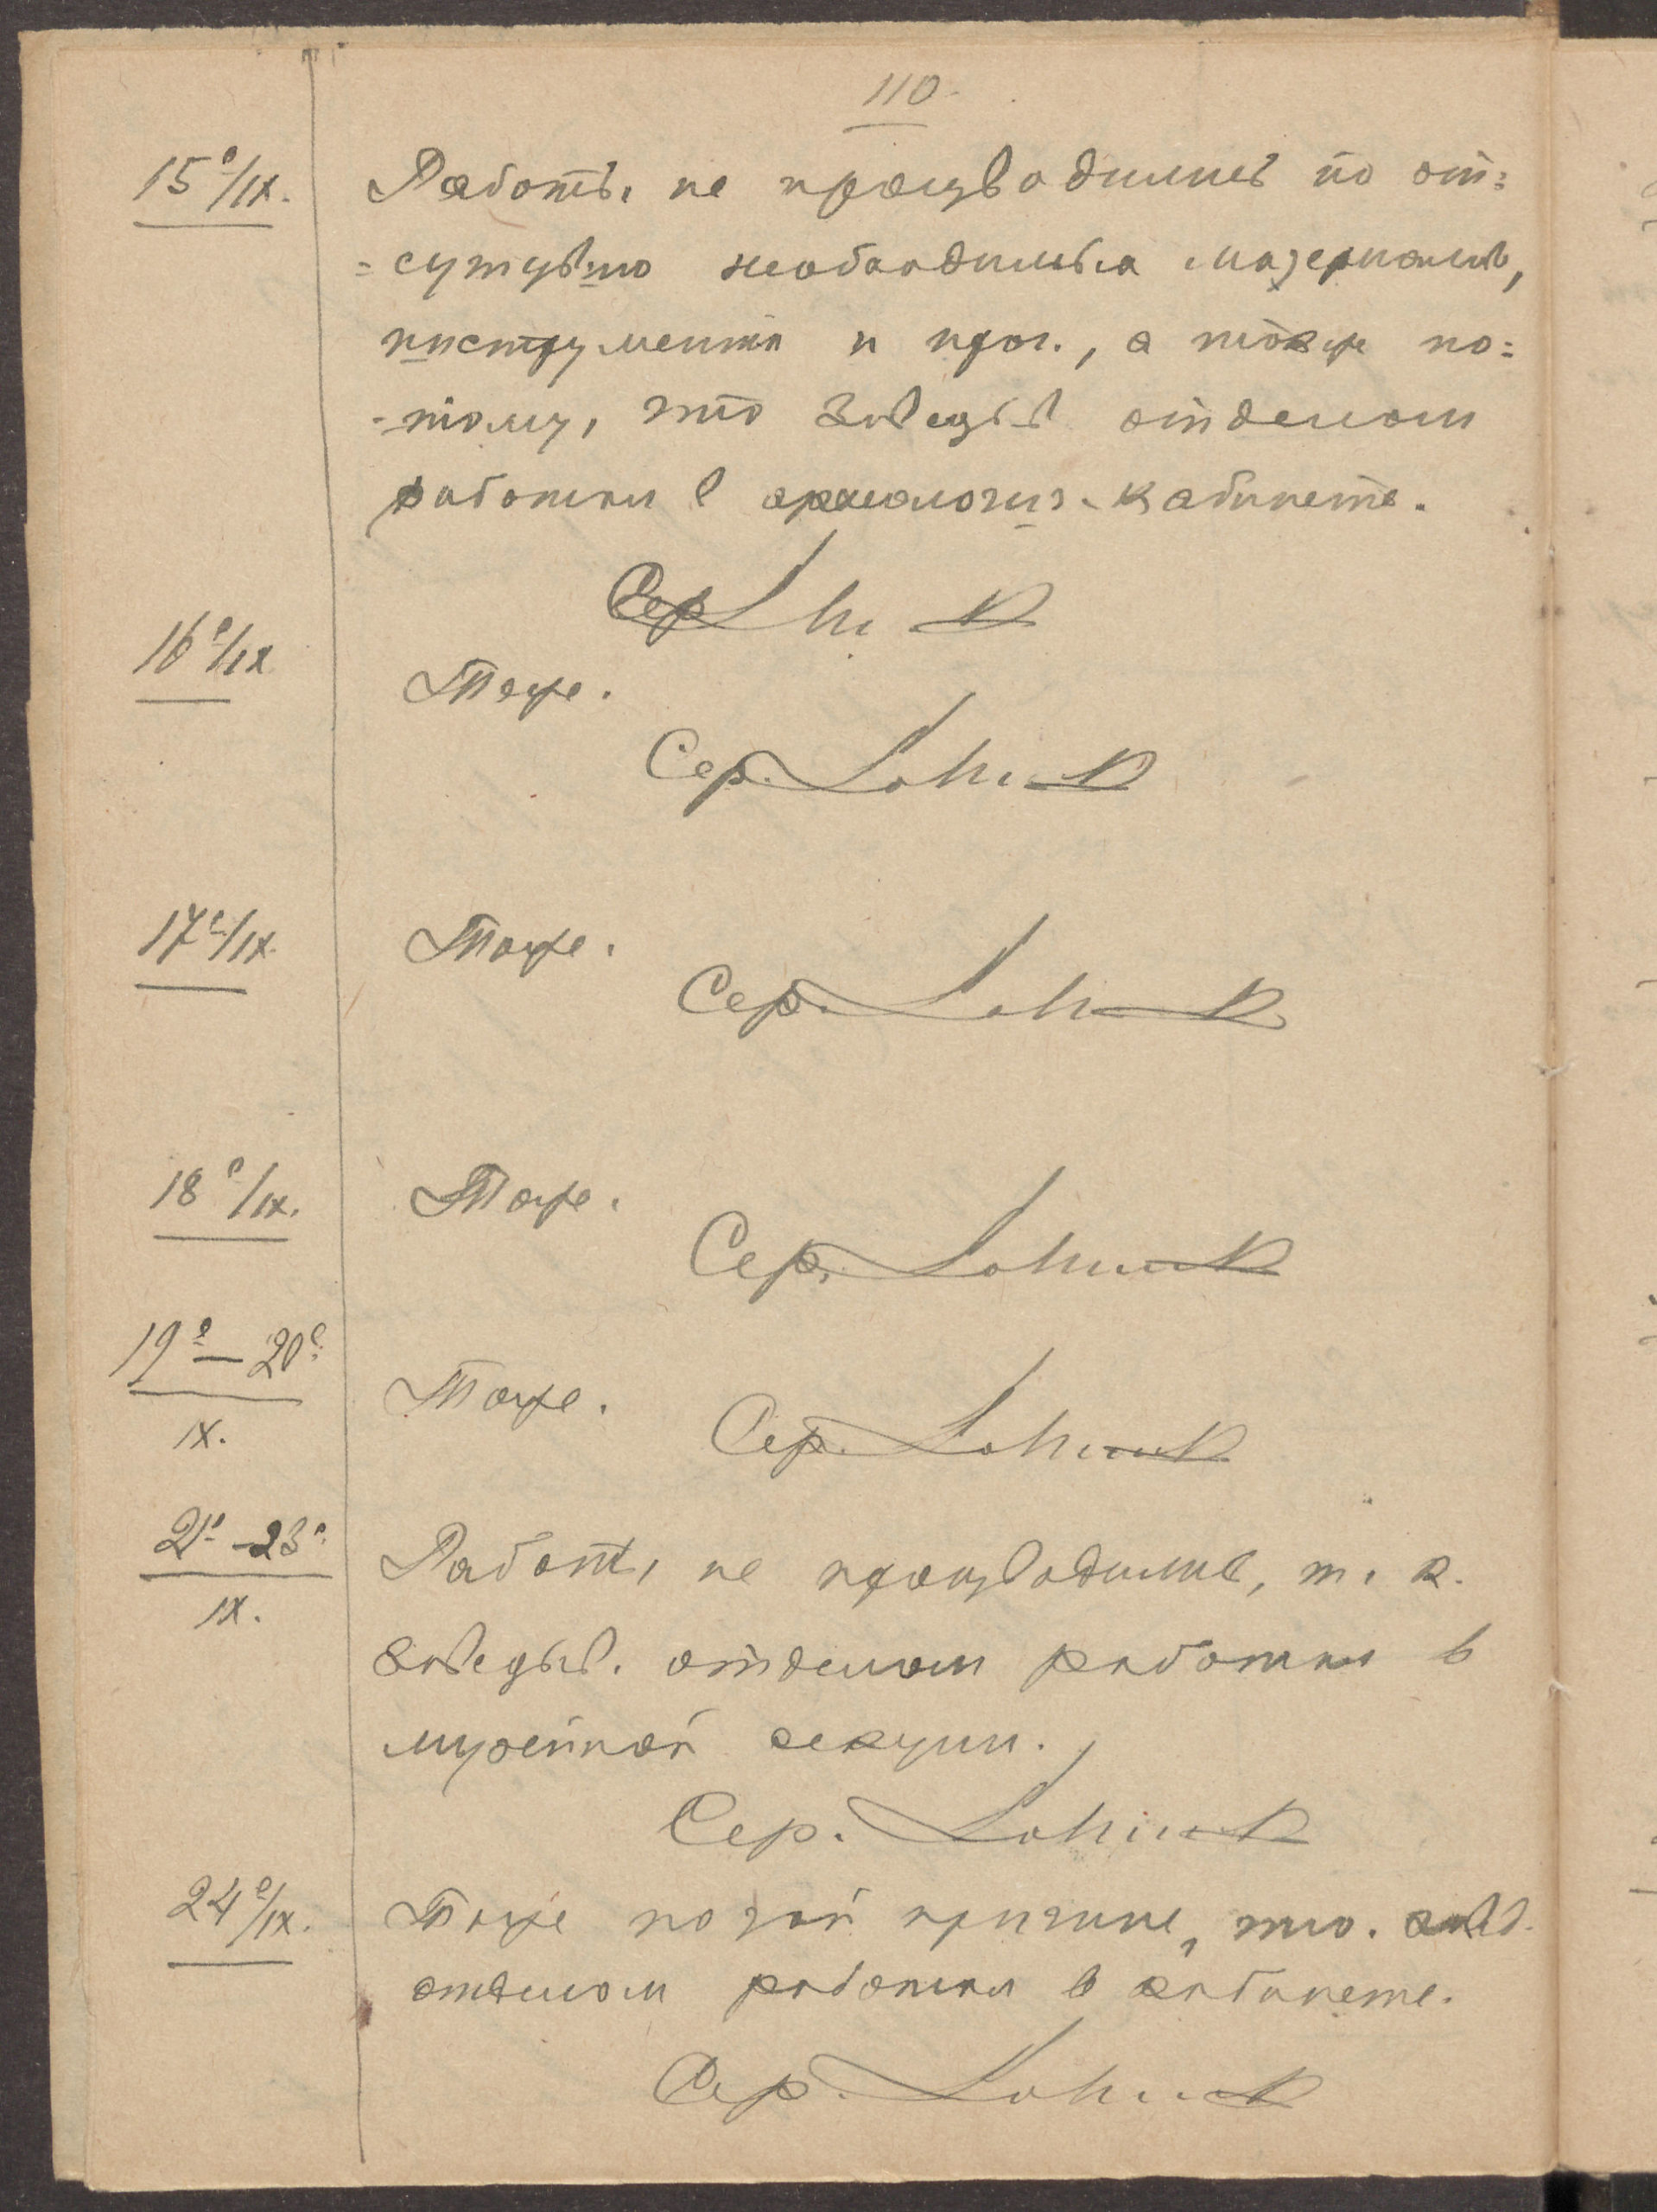 110.
15º/IX.
Работы не производились по от=
=сутствию необходимыха материалов,
инструмента и проч., а также по=
=тому, что Заведыв. отделом
работал в археологич. кабинете.
Сер
16º/IX
Тоже.
Сер.
17º/IX.
Тоже.
Сер.
18º/IX.
Тоже.
Сер.
19º – 20º
IX.
Тоже.
Сер.
21º – 23º
IX.
Работы не производились, т. к.
Заведыв. отделом работал в
музейной секции.
Сер.
24º/IX.
Тоже по той причине, что. завед.
отделом работал в кабинете.
Сер.